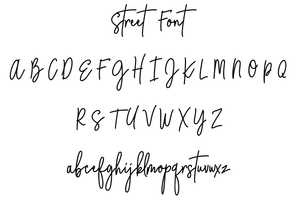 Street Font
A B C D E F G H I J K L M N O P Q
R S T U V W X Y Z
abcdefghijklmnopqrstuvwxyz